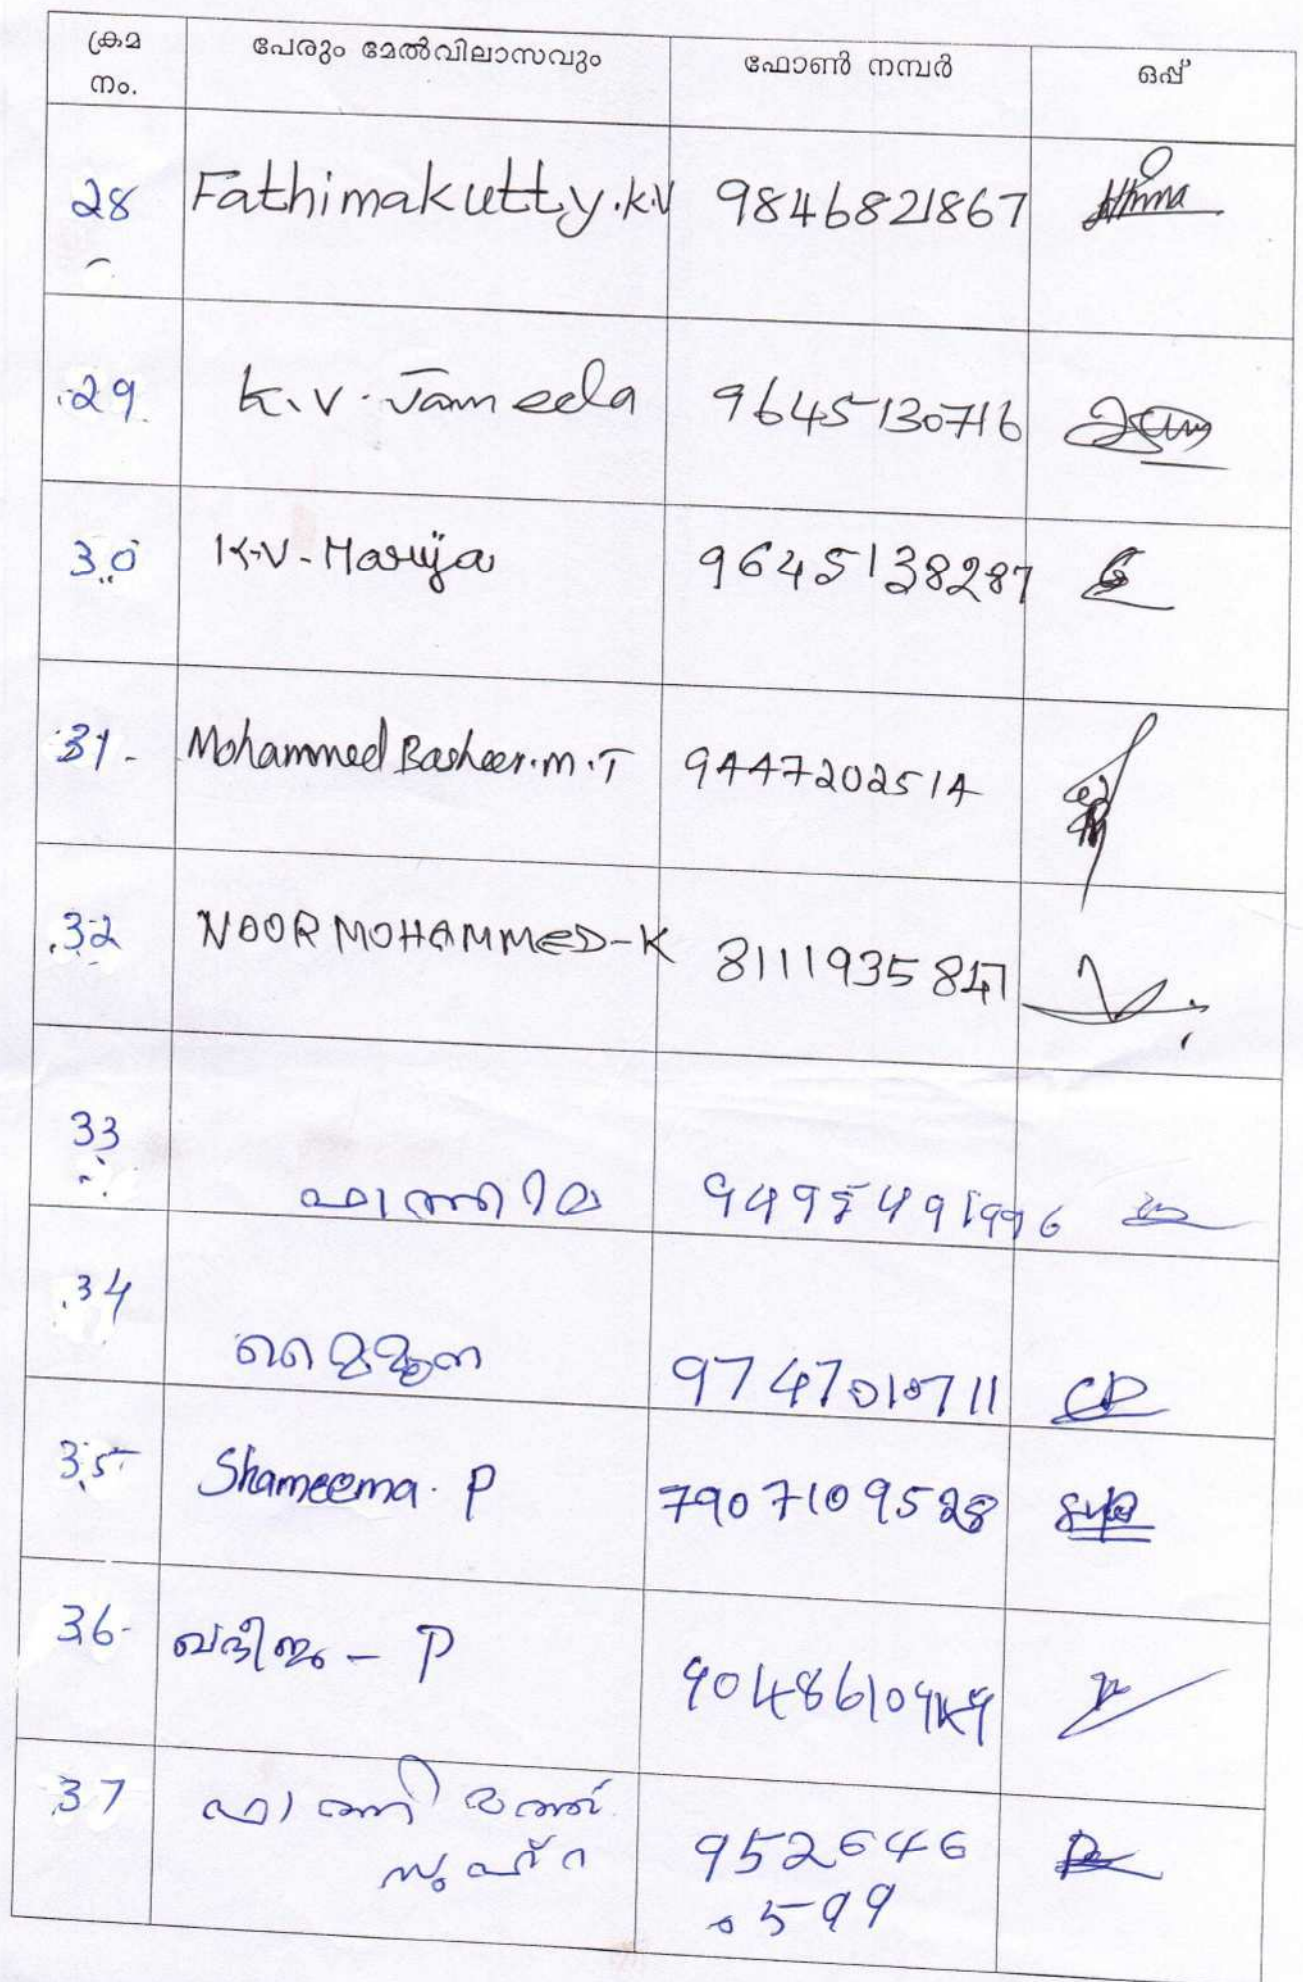 ക്രമ നം. പേരും മേൽവിലാസവും ഫോൺ നമ്പർ ഒപ്പ്
28 Fathimakutty.K.V 9846821867
29 K.V. Jameela 9645130716
30 K.V- Marija 9645138287
31- Mohammed Basheer.M.T 9447202514
32 NOOR MOHAMMED-K 8111935847
33 ഫാത്തിമ
34 മൈമൂന 9747010711
35 Shameema. P 7907109528
36- ഖദീജ - P
37 ഫാത്തിമത്ത് 952646
സുഹ്റ 0599